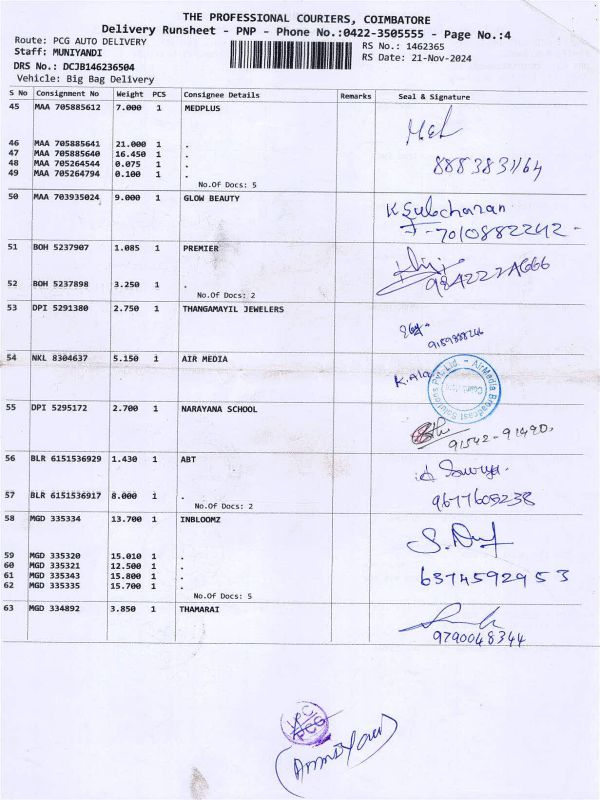 THE PROFESSIONAL COURIERS, COIMBATORE
Delivery Runsheet - PNP - Phone No.:0422-3505555 - Page No.:4
Route: PCG AUTO DELIVERY
RS No.: 1462365
Staff: MUNIYANDI
RS Date: 21-Nov-2024
DRS No.: DCJB146236504
Vehicle: Big Bag Delivery
S No Consignment No Weight PCS Consignee Details Remarks Seal & Signature
45 MAA 705885612 7.000 1 MEDPLUS
46 MAA 705885641 21.000 1 .
47 MAA 705885640 16.450 1 .
48 MAA 705264544 0.075 1 .
49 MAA 705264794 0.100 1 .
8883831164
No.Of Docs: 5
50 MAA 703935024 9.000 1 GLOW BEAUTY
K Gulocharan
7010882242
51 BOH 5237907 1.085 1 PREMIER
52 BOH 5237898 3.250 1 .
No.Of Docs: 2
53 DPI 5291380 2.750 1 THANGAMAYIL JEWELERS
54 NKL 8304637 5.150 1 AIR MEDIA
K.Ala
AirMedia Broadcast Solutions Pvt. Ltd.
55 DPI 5295172 2.700 1 NARAYANA SCHOOL
91542-91490.
56 BLR 6151536929 1.430 1 ABT
Sowrya.
57 BLR 6151536917 8.000 1 .
9677605238
No.Of Docs: 2
58 MGD 335334 13.700 1 INBLOOMZ
59 MGD 335320 15.010 1 .
60 MGD 335321 12.500 1 .
61 MGD 335343 15.800 1 .
62 MGD 335335 15.700 1 .
6374592953
No.Of Docs: 5
63 MGD 334892 3.850 1 THAMARAI
9790048344
PCG